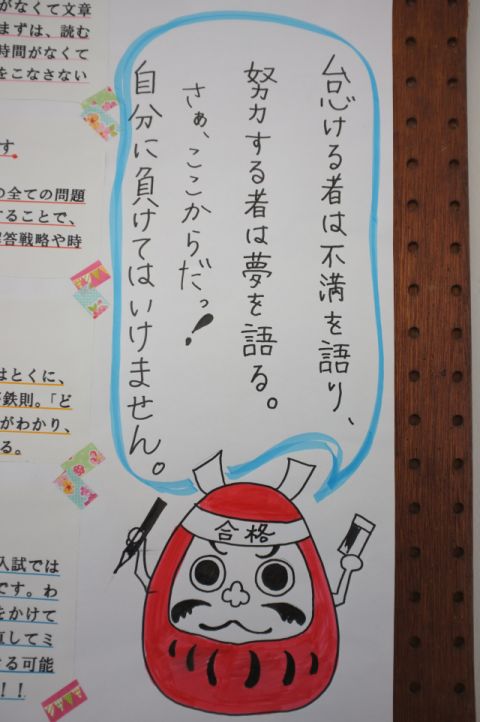 怠ける者は不満を語り、
努力する者は夢を語る。
さぁ、ここからだっ!
自分に負けてはいけません。
合格
がなくて文章
まずは、読む
時間がなくて
をこなさない
す
の全ての問題
することで、
答戦略や時
はとくに、
鉄則。「ど
がわかり、
る。
入試では
です。わ
をかけて
直してミ
る可能
!!